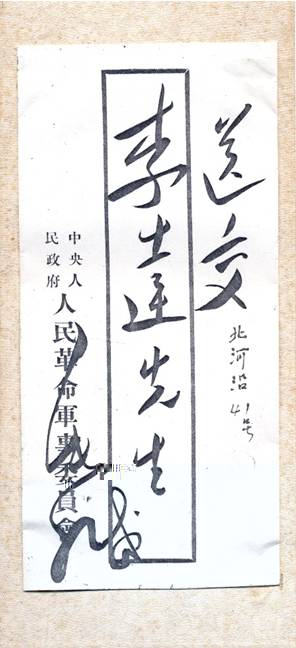 送交
北河沿41号
李士先生
中央人
民政府
人民革命軍事委員會